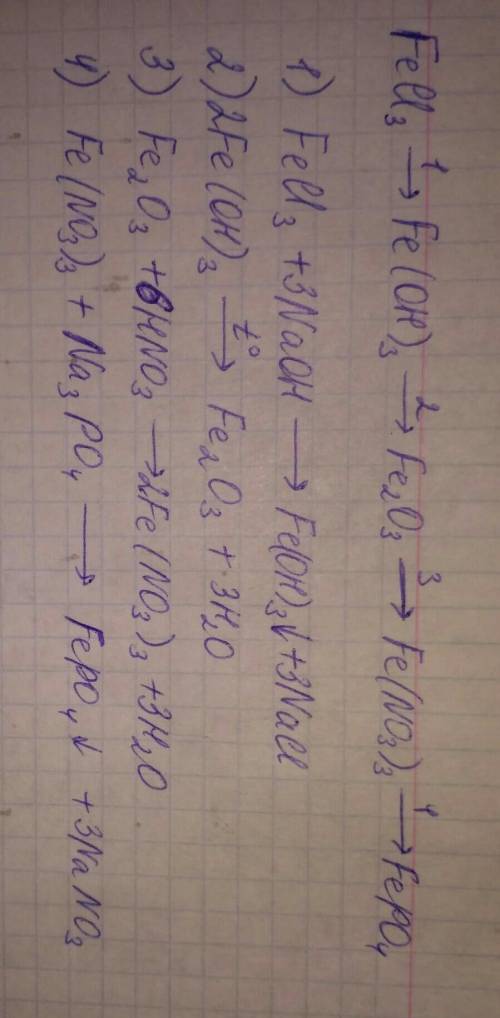 FeCl₃ →¹ Fe(OH)₃ →² Fe₂O₃ →³ Fe(NO₃)₃ →⁴ FePO₄
1) FeCl₃ + 3NaOH → Fe(OH)₃↓ + 3NaCl
2) 2Fe(OH)₃ →t° Fe₂O₃ + 3H₂O
3) Fe₂O₃ + 6HNO₃ → 2Fe(NO₃)₃ + 3H₂O
4) Fe(NO₃)₃ + Na₃PO₄ → FePO₄↓ + 3NaNO₃